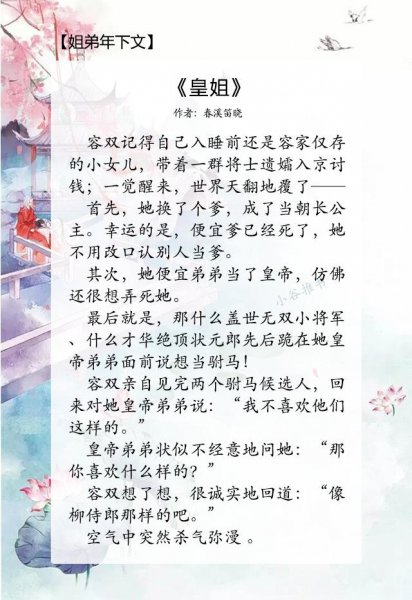 【姐弟年下文】
《皇姐》
作者：春溪笛晓
容双记得自己入睡前还是容家仅存
的小女儿，带着一群将士遗孀入京讨
钱；一觉醒来，世界天翻地覆了——
首先，她换了个爹，成了当朝长公
主。幸运的是，便宜爹已经死了，她
不用改口认别人当爹。
其次，她便宜弟弟当了皇帝，仿佛
还很想弄死她。
最后就是，那什么盖世无双小将军
、什么才华绝顶状元郎先后跪在她皇
帝弟弟面前说想当驸马！
容双亲自见完两个驸马候选人，回
来对她皇帝弟弟说：“我不喜欢他们
这样的。”
皇帝弟弟状似不经意地问她：“那
你喜欢什么样的？”
容双想了想，很诚实地回道：“像
柳侍郎那样的吧。”
空气中突然杀气弥漫 。